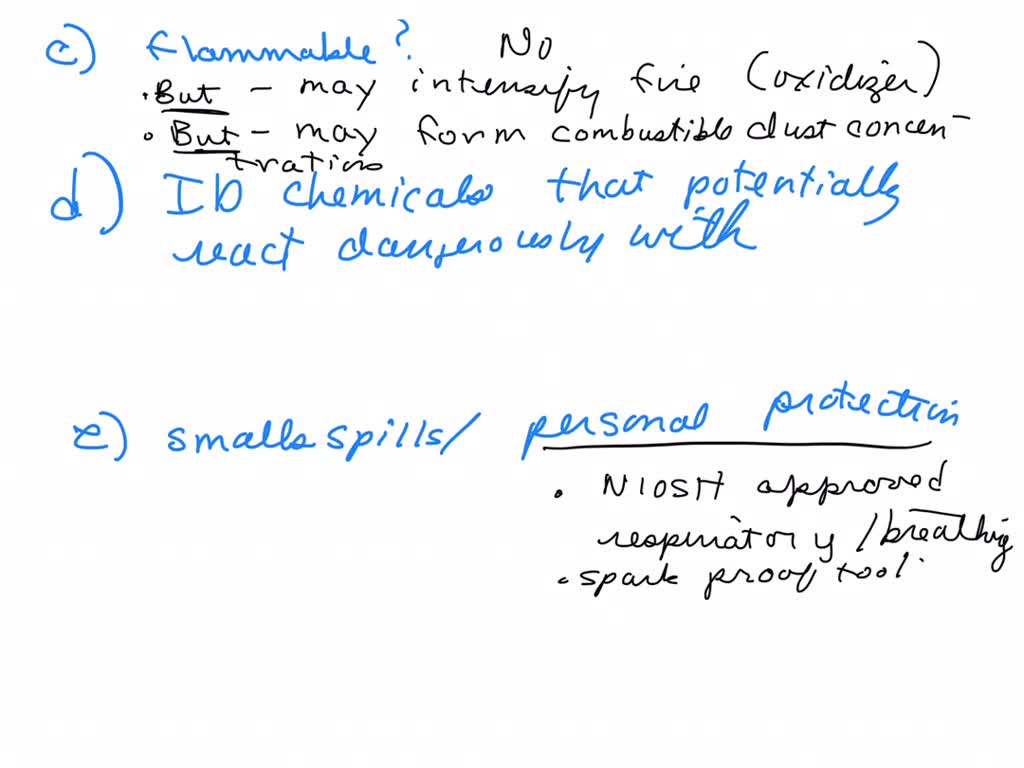 c) flammable? No
• But - may intensify fire (oxidizer)
• But - may form combustible dust concen-
trations
d) ID chemicals that potentially
react dangerously with
e) smalls spills/ personal protection
• NIOSH approved
respiratory / breathing
• spark proof tool